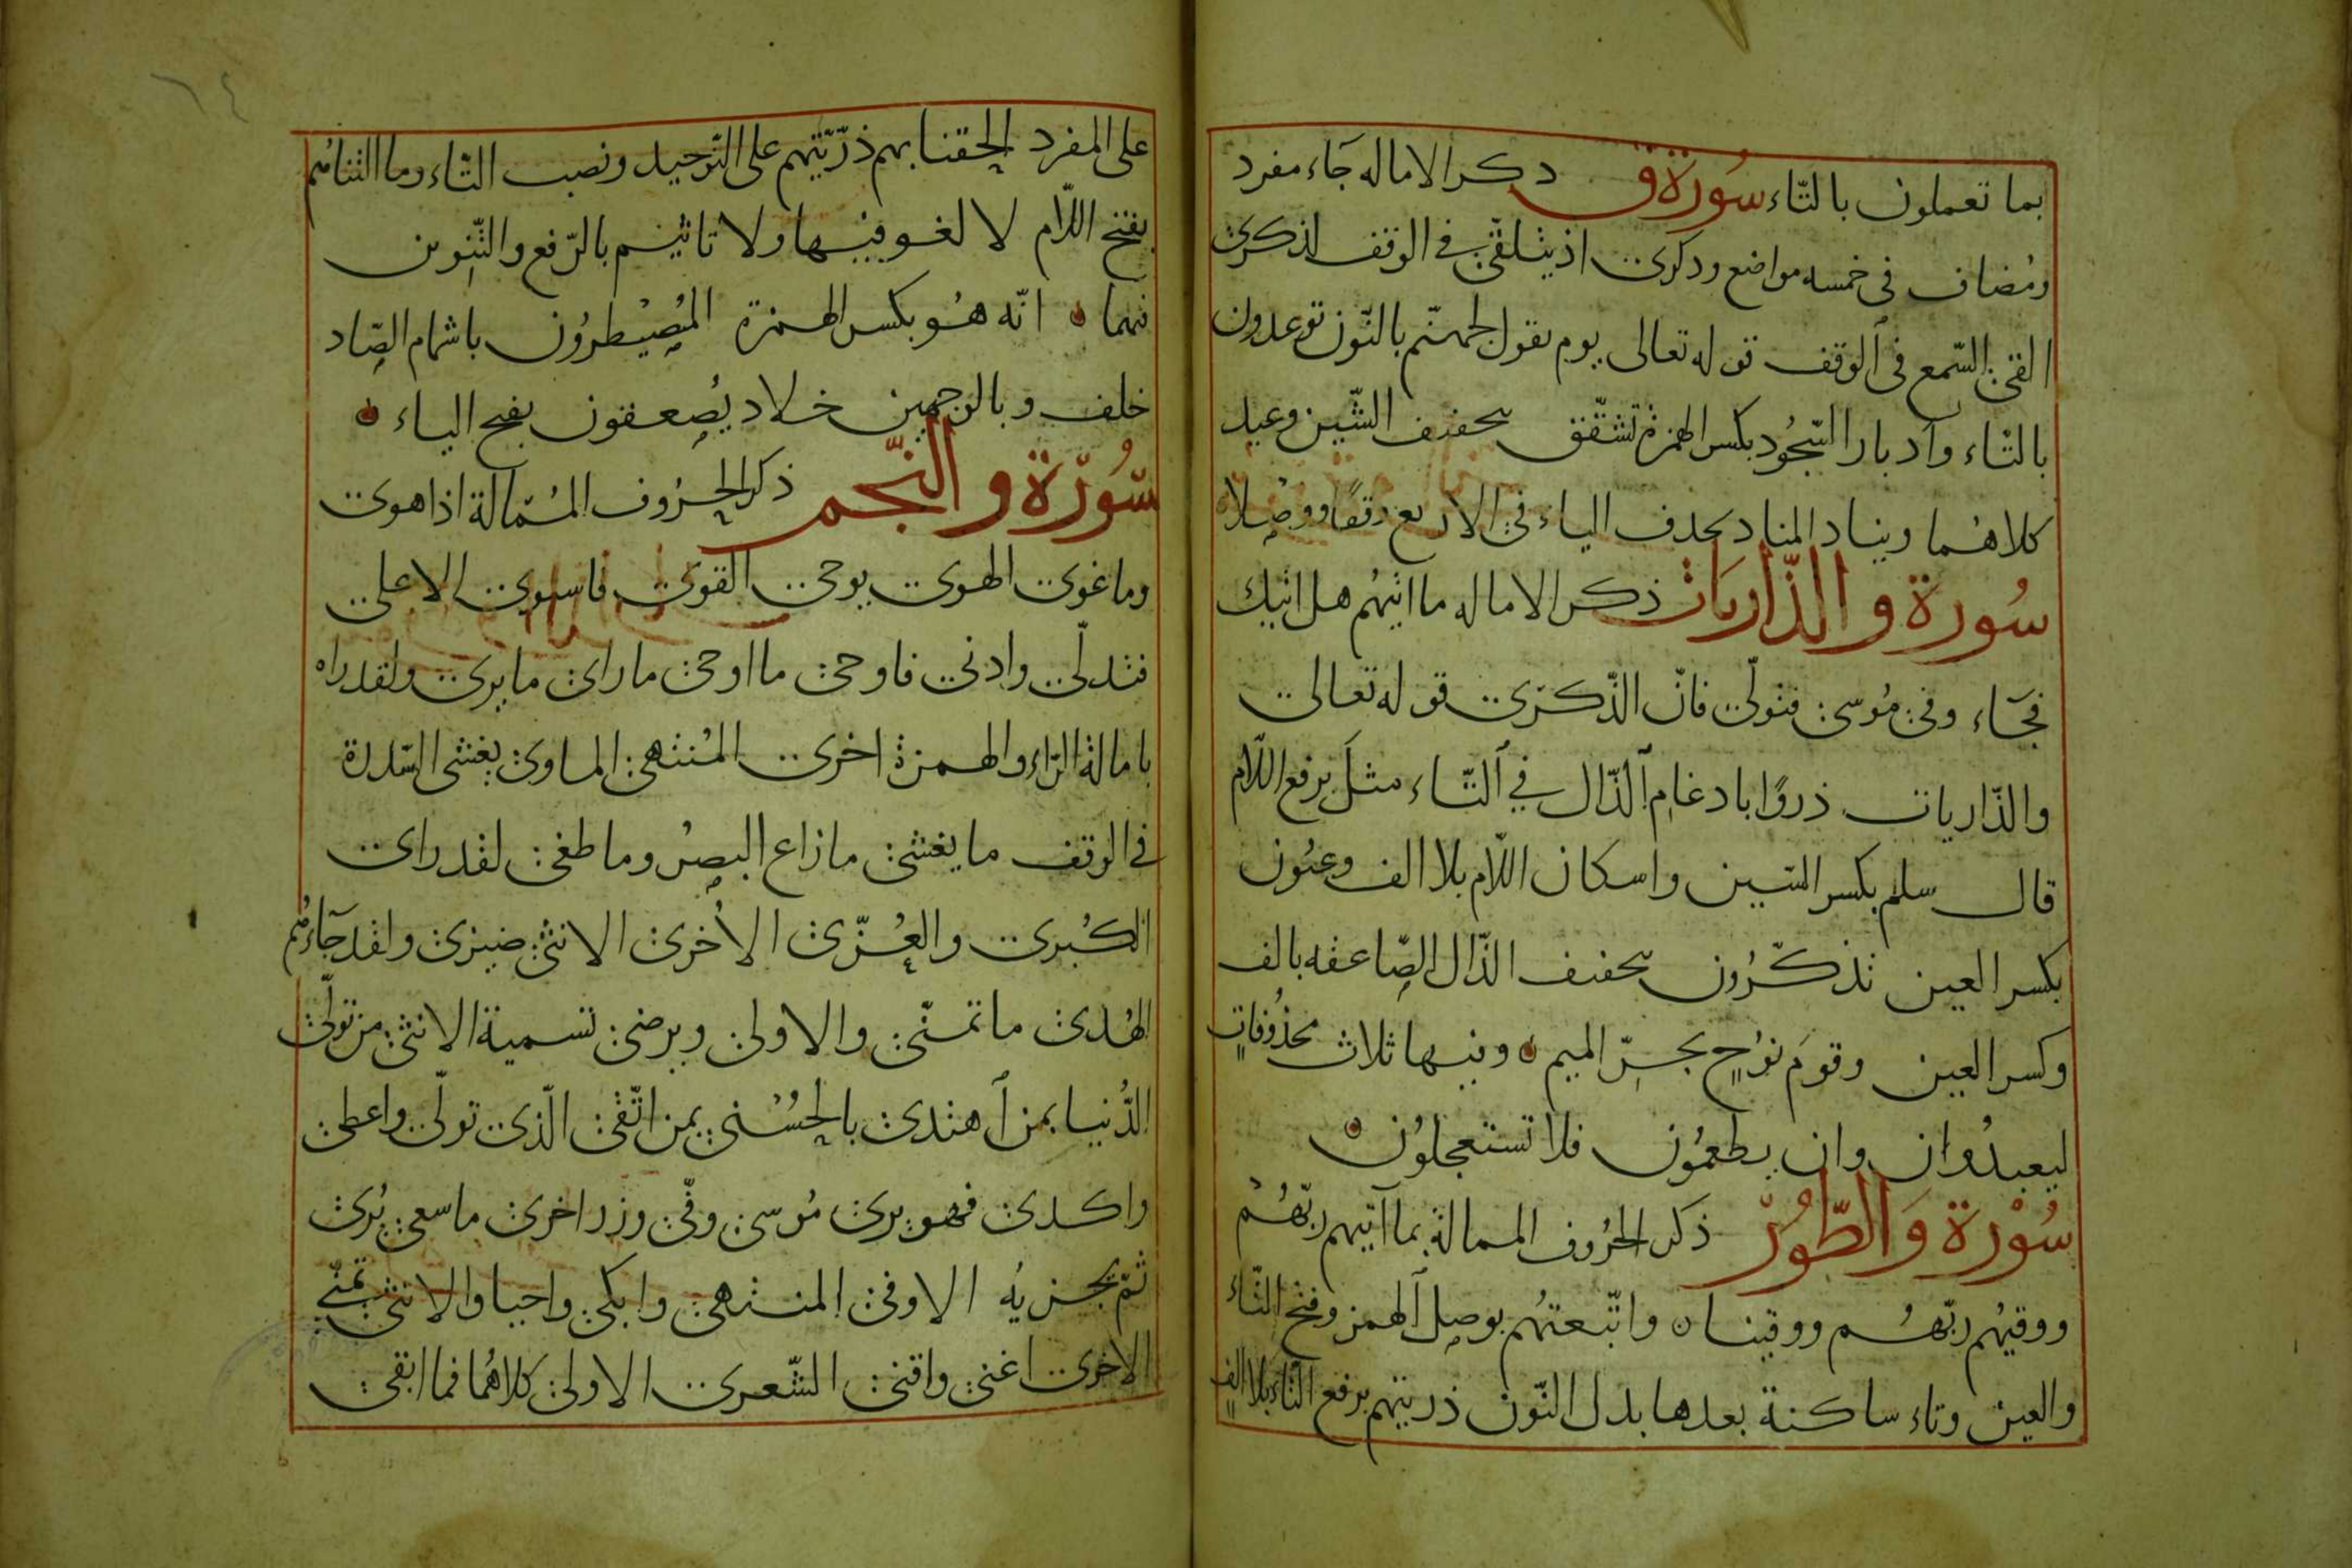 بما تعملون بالتّاء سُورة ق ذكر الاماله جَاء مفرد
ومُضاف فى خمسه مواضع وذكرى اذ يتلقّى فى الوقف لذكرى
القى السّمع فى الوقف قوله تعالى يوم نقول لجهنّم بالنّون توعدون
بالتّاء وادبار السّجُود بكسر الهمزة تشقّق بتخفيف الشّين وعيد
كلاهُما وينادِ المناد بحذف الياء فى الاربع وقفًا ووصْلا
سُورة والذّاريَات ذكر الاماله ما اتيهُم هل اتيك
فجَآء وفى مُوسى فتولّى فانّ الذّكرَى قوله تعالى
والذّاريات ذروًا بادغام الذّال فى التّاء مثلَ برفع اللّام
قال سلم بكسر السّين واسكان اللّام بلا الف وعيُون
بكسر العين تذكّرُون بتخفيف الذّال الصّاعقه بالف
وكسر العين وقومَ نوُحٍ بجرّ الميم وفيها ثلاث محذُوفاتٍ
ليعبدُوان وان يطعمُون فلا تستعجلوُن
سُوْرة وَالطّوُرْ ذكر الحُروف الممالة بما اتيهم ربّهُمْ
ووقيهُم ربّهُم ووقينا واتّبعتهُم بوصل الهمز وفتح التّاء
والعين وتاء ساكنة بعدها بدل النّون ذريتهم برفع التّاء بلا الفٍ
على المفرد الحقنا بهم ذرّيّتهم على التّوحيد ونصب التّاء وما التناهُم
بفتح اللّام لا لغو فيها ولا تاثيم بالرّفع والتّنوين
فيهما انّه هُو بكسر الهمزة المُصيْطرُون باشمام الصّاد
خلف وبالوجهين خلاد يُصعقون بفتح الياء
سُوْرة والنّجم ذكر الحرُوف المُمالة اذا هوى
وما غوى الهوى يوحى القوى فاستوى الاعلى
فتدلّى وادنى فاوحى ما اوحى ما راى ما يرى ولقد راه
بامالة الرّاء والهمزة اخرى المُنتهى الماوى يغشى السّدرة
فى الوقف ما يغشى ما زاغ البصرُ وما طغى لقد راى
الكُبرى والعُزّى الاُخرى الانثى ضيزى ولقد جَآءهُم
الهُدى ما تمنّى والاولى ويرضى تسمية الانثى من تولّى
الدُنيا بمن اهتدى بالحُسْنى بمن اتّقى الّذى تولّى واعطى
واكدى فهو يرى مُوسى وفّى وزر اخرى ما سعى يُرى
ثمّ يجزيه الاوفى المنتهى وابكى واحيا والانثى تمنى
الاخرى اغنى واقنى الشّعرى الاولى كلاهُما فما ابقى